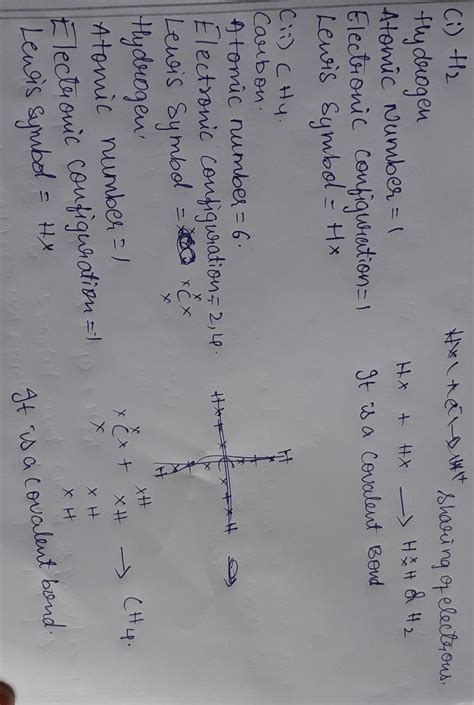 (i) H2
Hydrogen
Atomic Number = 1
Electronic configuration = 1
Lewis Symbol = Hx
sharing of electrons.
Hx + Hx → HxxH or H2
It is a covalent Bond
(ii) CH4.
Carbon.
Atomic number = 6.
Electronic configuration = 2,4.
Lewis Symbol = xCx
Hydrogen
Atomic number = 1
Electronic configuration = 1
Lewis Symbol = Hx
H
Hx
xH
H
xH
xCx + xH → CH4.
xH
xH
It is a covalent bond.